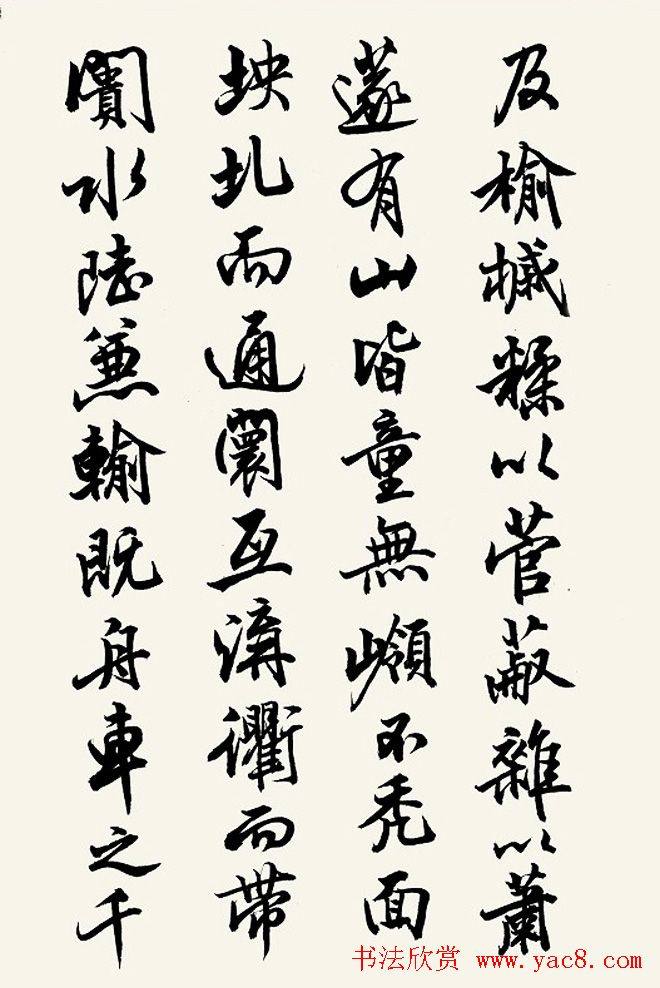 及榆槭糅以菅雜以蕭
有山皆童無嶺不禿面
坱圠而通闤互溝衢而帶
闠水陸兼輸既舟車之千
书法欣赏 www.yac8.com